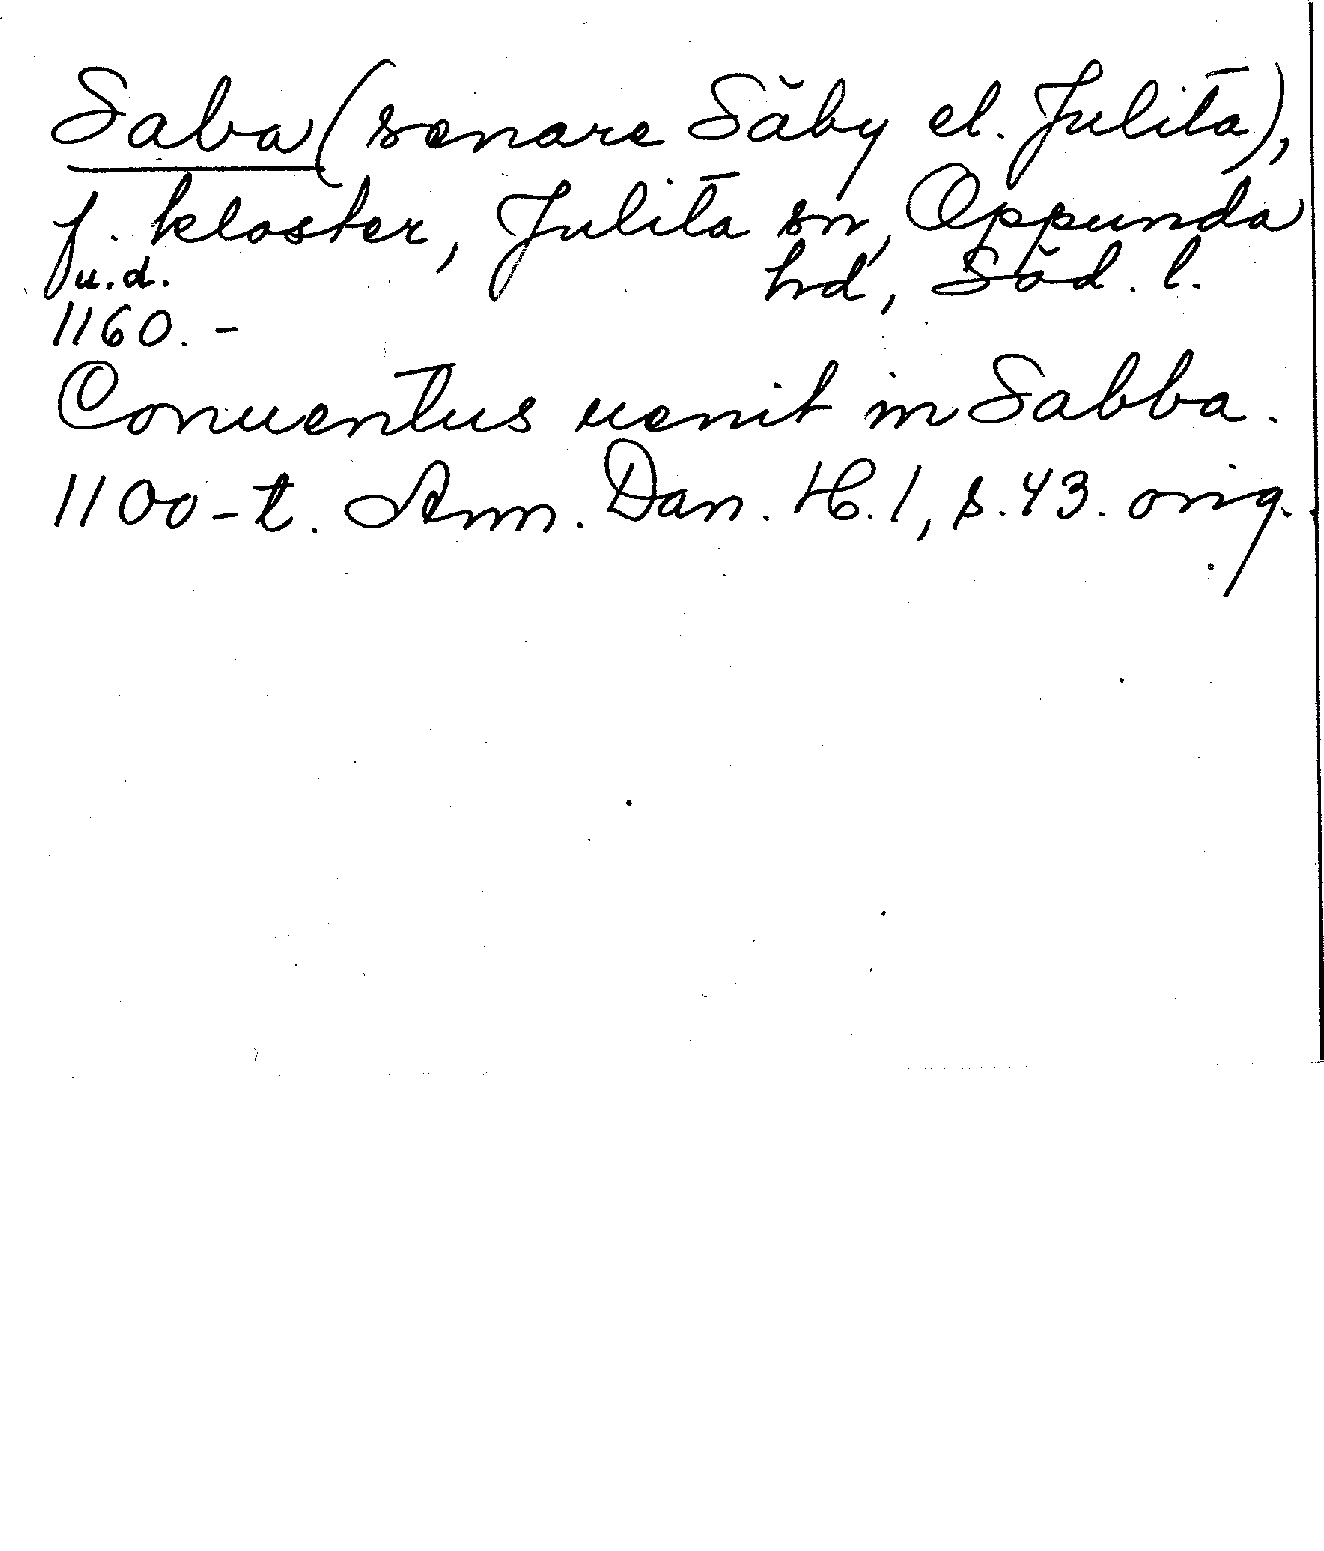 Saba (senare Säby el. Julita),
f. kloster, Julita sn, Oppunda
hd, Söd. l.
u.d.
1160. -
Conuentus uenit in Sabba.
1100-t. Ann. Dan. H. 1, s. 43. orig.